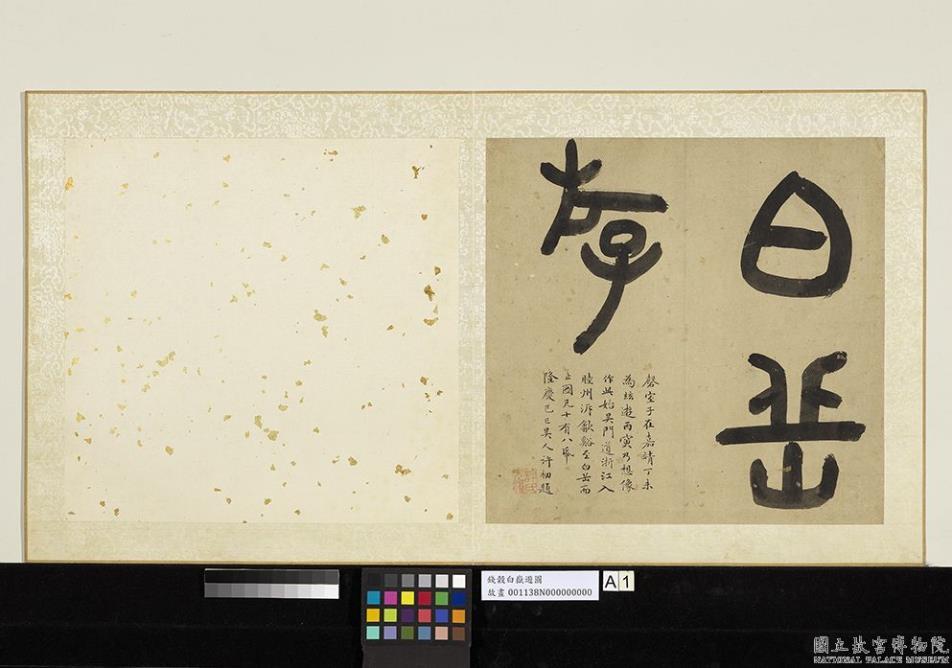 白岳
游
磬室子在嘉靖丁未
為玆遊丙寅乃想像
作此始吳門道浙江入
睦州泝歙谿至白岳而
止圖凡十有八幀
隆慶己巳吳人許初題
錢穀白嶽遊圖
故畫 001138N000000000
A 1
國立故宮博物院
NATIONAL PALACE MUSEUM